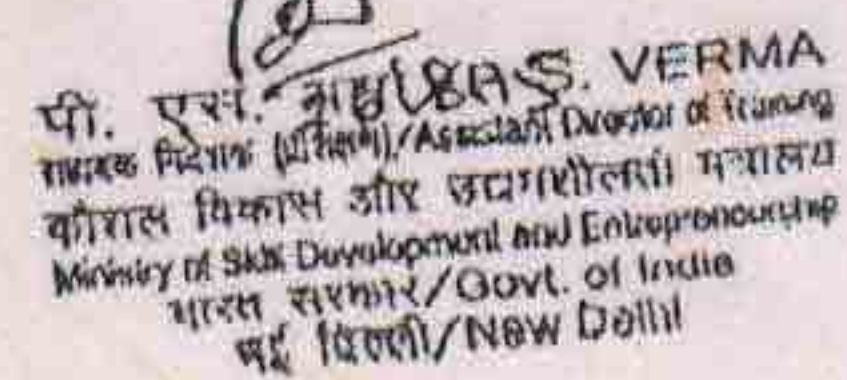 पी. एस. S. VERMA
सहायक निदेशक (प्रशिक्षण)/Assistant Director of Training
कौशल विकास और उद्यमशीलता मंत्रालय
Ministry of Skill Development and Entrepreneurship
भारत सरकार/Govt. of India
नई दिल्ली/New Delhi